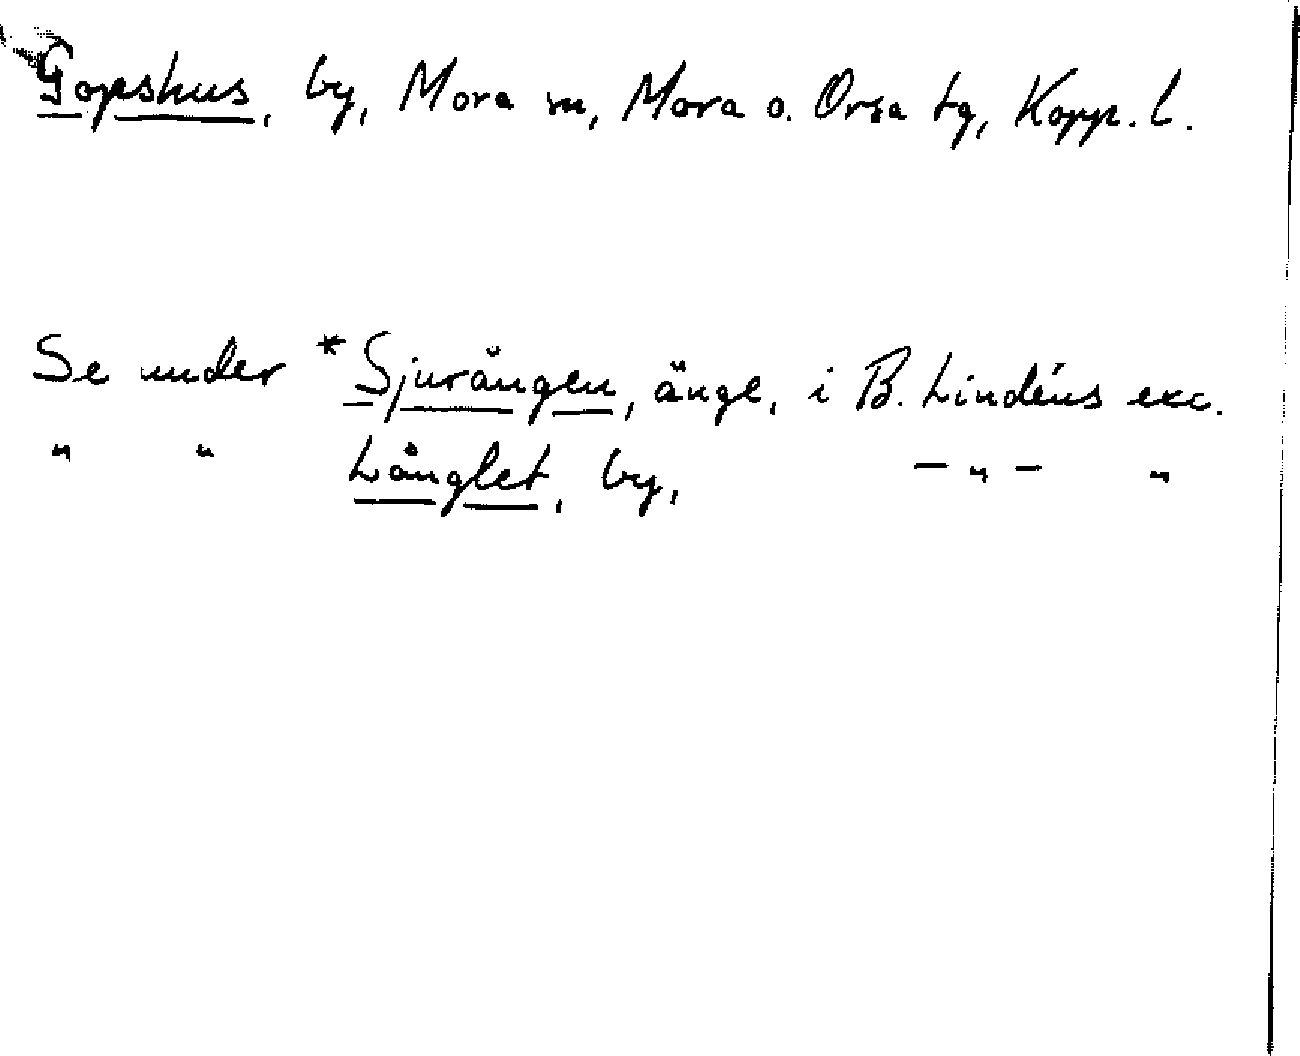 Gopshus, by, Mora sn, Mora o. Orsa tg, Kopp. l.
Se under *Sjurängen, ängl, i B. Lindéns exc.
" " Långlet, by, – " – "